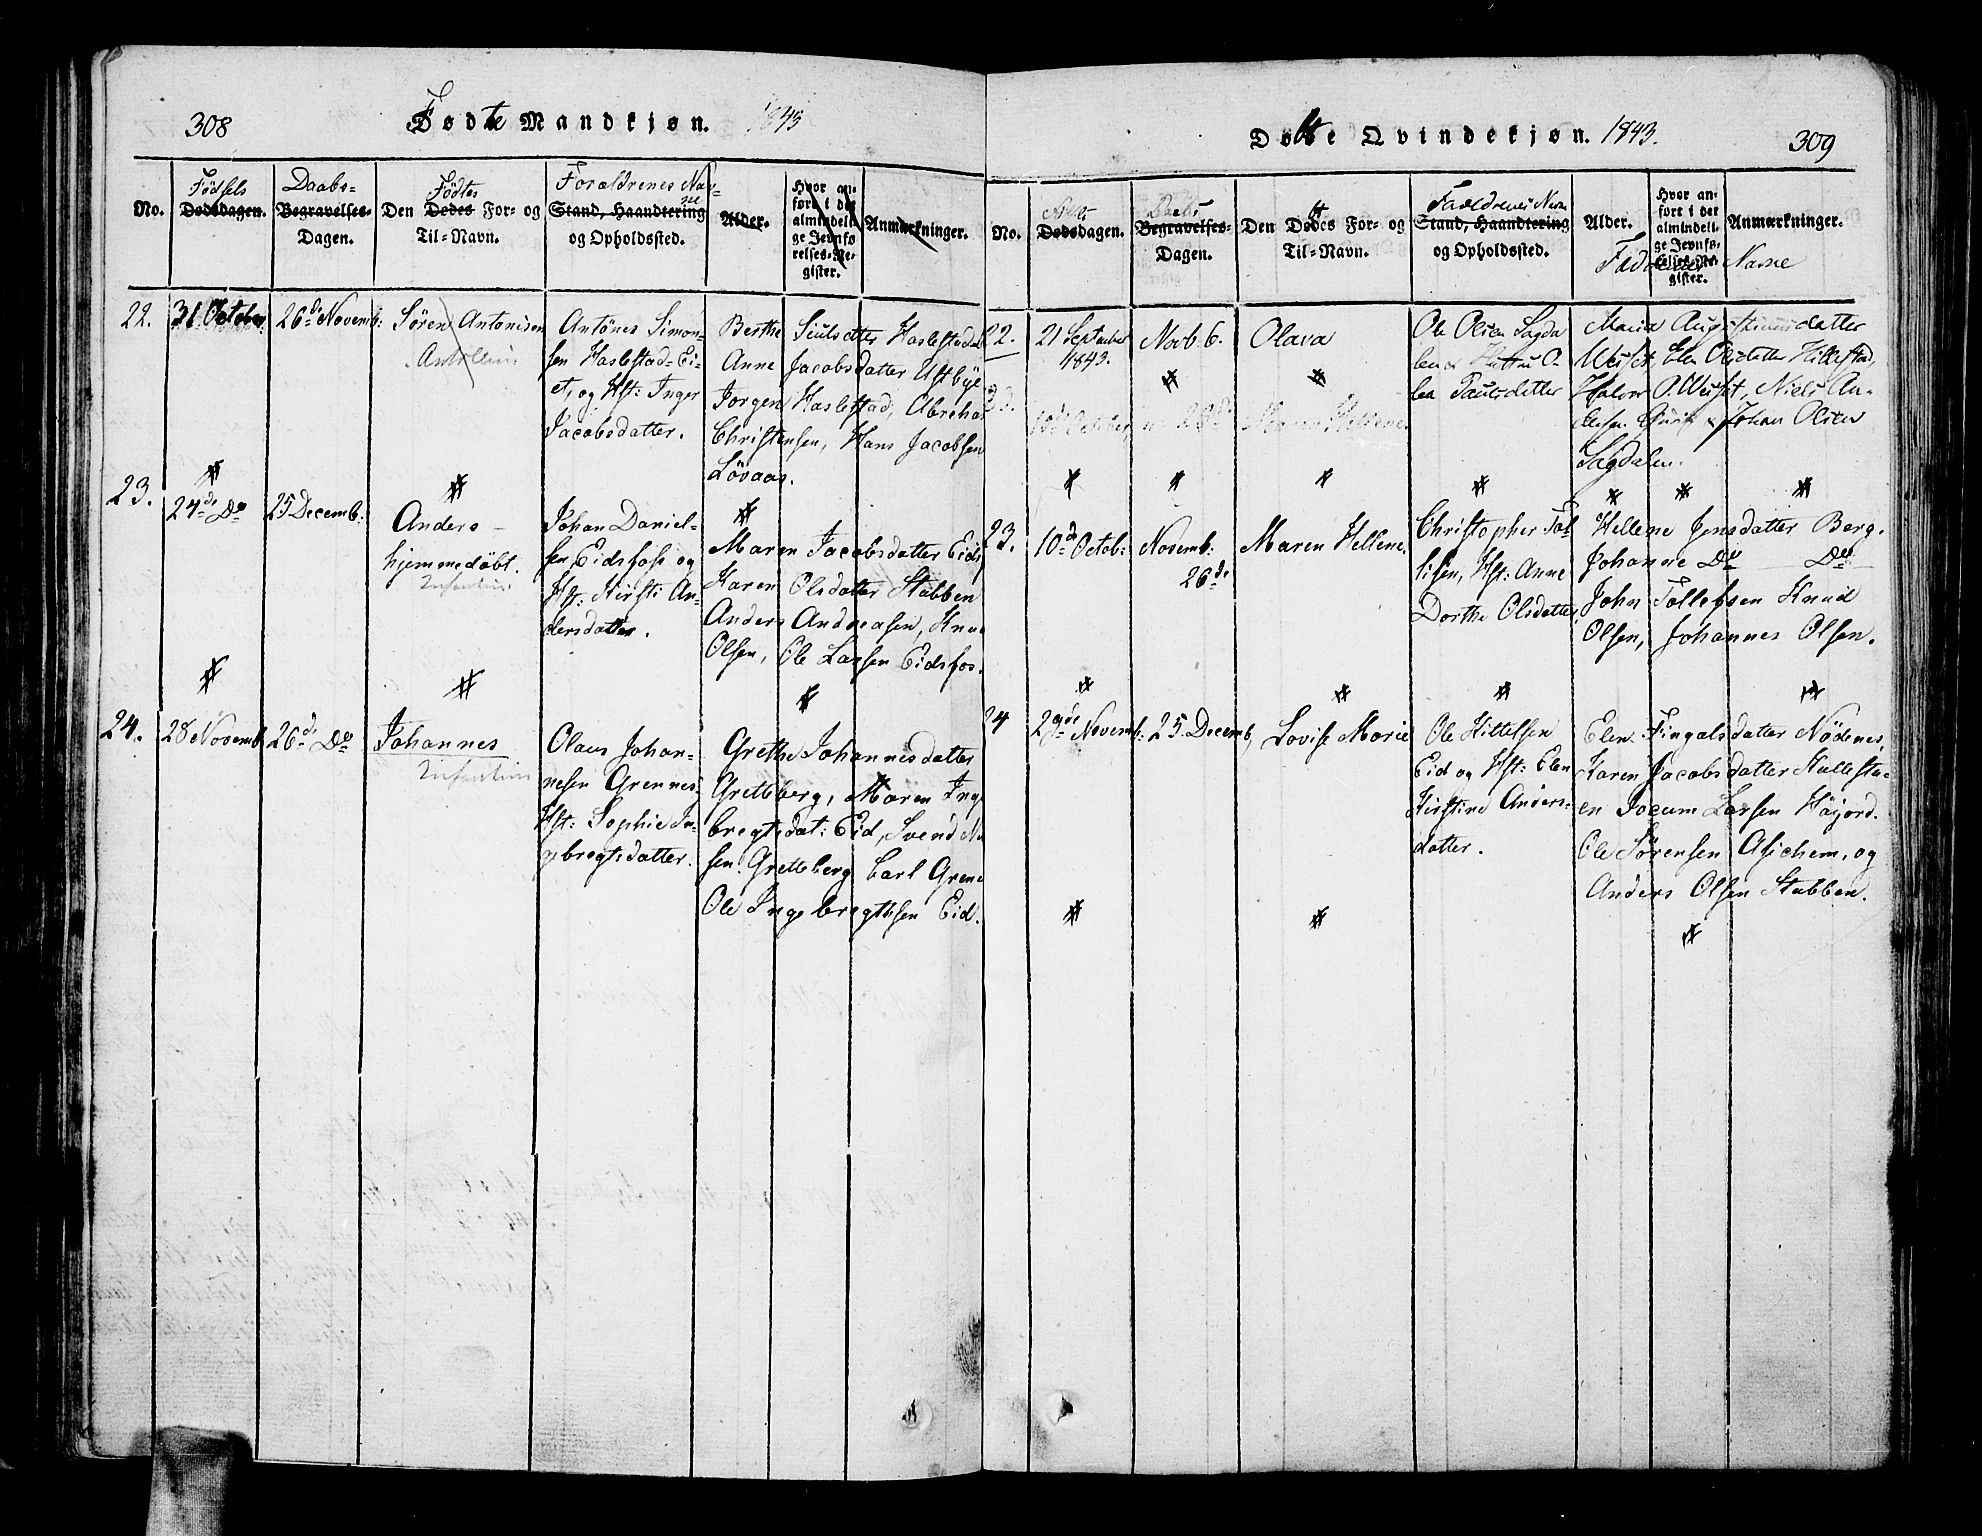 308
Fødte Mandkjøn. 1843
No.
Fødsels
Dødsdagen.
Daabs-
Begravelses-
Dagen.
Fødtes
Den Dødes For- og
Til-Navn.
Forældrenes Nav-
ne
Stand, Haandtering
og Opholdssted.
Alder.
Hvor an-
ført i det
almindeli-
ge Jevnfø-
relses-Re-
gister.
Anmærkninger.
22.
31 October
26de Novemb:
Søren Antonisen
Antónes Simon-
sen Haslestad-Ei-
et, og Hst: Inger
Jacobsdatter.
Berthe Siulsdatter Haslestad
Anne Jacobsdatter Ustbye
Jorgen Haslestad, Abraha
Christensen, Hans Jacobsen
Lövaas.
23.
24de Do
25 Decemb:
Anders
hjemmedøbt.
Johan Daniel-
sen Eidsfoss og
Hst: Kirsti An-
dersdatter.
Maren Jacobsdatter Eids
Karen Olsdatter Stabben
Anders Andreasen, Knu
Olsen, Ole Larsen Eidsfos.
24.
28 Novemb
26de Do
Johannes
Olaus Johan-
nesen Grennes,
Hst: Sophie In-
gebregtsdatter.
Grethe Johannesdatter
Gretteberg, Maren Inge
bregtsdat: Eid, Svend
sen Gretteberg Carl Grene
Ole Ingebregthsen Eid.
Døbte Qvindekjøn. 1843.
309
No.
Dødsdagen.
Daabs
Begravelses-
Dagen.
Den Dødes For- og
Til-Navn.
Forældrenes Navn
Stand, Haandtering
og Opholdssted.
Alder.
Hvor an-
ført i det
almindeli-
ge Jevnfø-
relses-Re-
gister.
Anmærkninger.
Faddernes Navne
22.
21 September
1843.
Novb. 6.
Olava
Ole Olsen Sagda
len
Paulsdatter
Maria Augustinusdatter
Elen Olsdatter Hillestad,
Halvor Niels An-
Johan Olsen
Sagdalen.
23.
10de October
26de
Maren Hellene.
23.
10de Octob:
Novemb:
26de
Maren Hellene.
Christopher Tol-
lifsen, Hst: Anne
Dorthe Olsdatter
Hellene Jensdatter Berg.
Johanne Do Do
John Tollefsen Knud
Olsen, Johannes Olsen.
24
29de Novemb:
25. Decemb,
Lovise Marie
Ole Kittelsen
Eid og Hst: Elen
Kirstine Anders-
datter.
Elen Fingalsdatter Nödenes,
Karen Jacobsdatter Kallesta-
en Jocum Larsen Höjord.
Ole Sørensen Asichem, og
Anders Olsen Stabben.